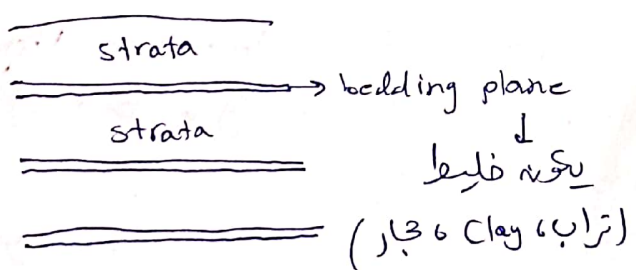 strata
bedding plane
strata
↓
يكون خليط
(تراب، Clay، حجار)